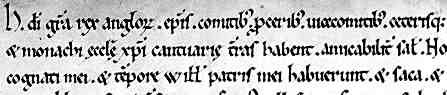 H. dī grā rex anglorꝝ. ep̄is. comitibꝰ. proceribꝰ. uicecomitibꝰ. ceterisq;
& monachi eccłę xp̄i cantuarię t̄ras habent. amicabilit̄ sał. Ho
cognati mei. & tēpore Willi patris mei habuerunt. & saca &